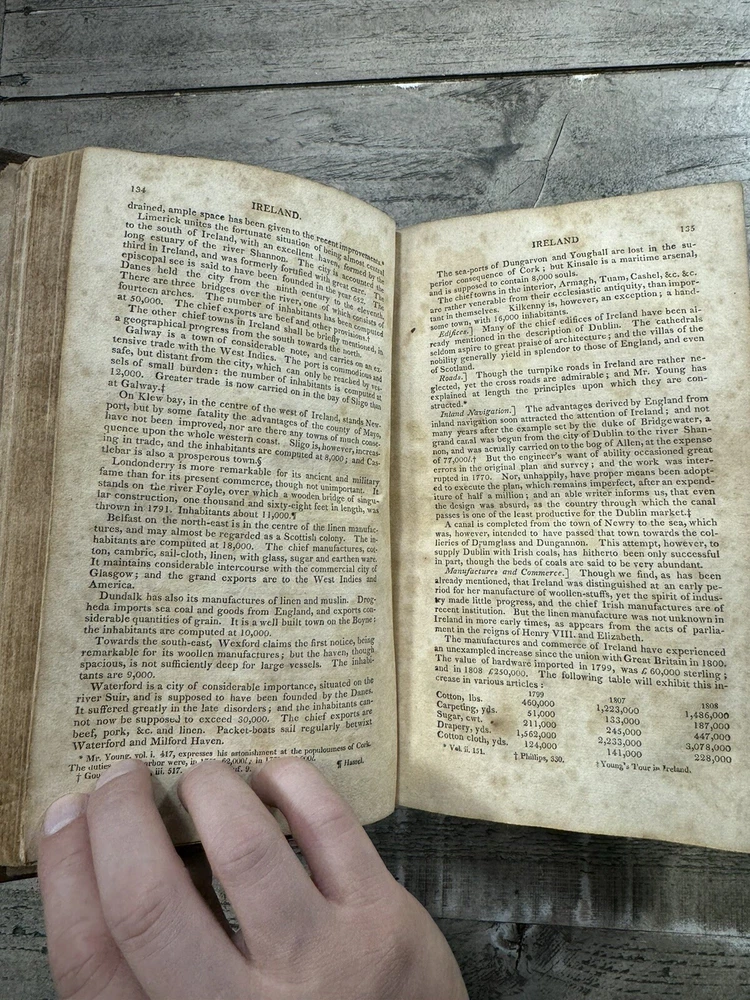 134
IRELAND.
drained, ample space has been given to the recent improvements.*
Limerick unites the fortunate situation of being almost central
to the south of Ireland, with an excellent haven, formed by the
long estuary of the river Shannon. The city is accounted the
third in Ireland, and was formerly fortified with great care. The
episcopal see is said to have been founded in the year 652. The
Danes held the city from the ninth century to the eleventh.
There are three bridges over the river, one of which consists of
fourteen arches. The number of inhabitants has been computed
at 50,000. The chief exports are beef and other provisions.†
The other chief towns in Ireland shall be briefly mentioned, in
a geographical progress from the south towards the north.
Galway is a town of considerable note, and carries on an ex-
tensive trade with the West Indies. The port is commodious and
safe, but distant from the city, which can only be reached by ves-
sels of small burden: the number of inhabitants is computed at
12,000. Greater trade is now carried on in the bay of Sligo than
at Galway.‡
On Klew bay, in the centre of the west of Ireland, stands New-
port, but by some fatality the advantages of the county of Mayo,
have not been improved, nor are there any towns of much conse-
quence upon the whole western coast. Sligo is, however, increas-
ing in trade, and the inhabitants are computed at 8,000; and Cas-
tlebar is also a prosperous town.§
Londonderry is more remarkable for its ancient and military
fame than for its present commerce, though not unimportant. It
stands on the river Foyle, over which a wooden bridge of singu-
lar construction, one thousand and sixty-eight feet in length, was
thrown in 1791. Inhabitants about 11,000.¶
Belfast on the north-east is in the centre of the linen manufac-
tures, and may almost be regarded as a Scottish colony. The in-
habitants are computed at 18,000. The chief manufactures, cot-
ton, cambric, sail-cloth, linen, with glass, sugar and earthen ware.
It maintains considerable intercourse with the commercial city of
Glasgow; and the grand exports are to the West Indies and
America.
Dundalk has also its manufactures of linen and muslin. Drog-
heda imports sea coal and goods from England, and exports con-
siderable quantities of grain. It is a well built town on the Boyne:
the inhabitants are computed at 10,000.
Towards the south-east, Wexford claims the first notice, being
remarkable for its woollen manufactures; but the haven, though
spacious, is not sufficiently deep for large vessels. The inhabi-
tants are 9,000.
Waterford is a city of considerable importance, situated on the
river Suir, and is supposed to have been founded by the Danes.
It suffered greatly in the late disorders; and the inhabitants can-
not now be supposed to exceed 30,000. The chief exports are
beef, pork, &c. and linen. Packet-boats sail regularly betwixt
Waterford and Milford Haven.
* Mr. Young, vol. i. 447, expresses his astonishment at the populousness of Cork.
The duties arbor were, in
† Gou iii. 517. ¶ Hassel.
IRELAND
135
The sea-ports of Dungarvon and Youghall are lost in the su-
perior consequence of Cork; but Kinsale is a maritime arsenal,
and is supposed to contain 8,000 souls.
The chief towns in the interior, Armagh, Tuam, Cashel, &c. &c.
are rather venerable from their ecclesiastic antiquity, than impor-
tant in themselves. Kilkenny is, however, an exception; a hand-
some town, with 16,000 inhabitants.
Edifices.] Many of the chief edifices of Ireland have been al-
ready mentioned in the description of Dublin. The cathedrals
seldom aspire to great praise of architecture; and the villas of the
nobility generally yield in splendor to those of England, and even
of Scotland.
Roads.] Though the turnpike roads in Ireland are rather ne-
glected, yet the cross roads are admirable; and Mr. Young has
explained at length the principles upon which they are con-
structed.*
Inland Navigation.] The advantages derived by England from
inland navigation soon attracted the attention of Ireland; and not
many years after the example set by the duke of Bridgewater, a
grand canal was begun from the city of Dublin to the river Shan-
non, and was actually carried on to the bog of Allen, at the expense
of 77,000l.† But the engineer's want of ability occasioned great
errors in the original plan and survey; and the work was inter-
rupted in 1770. Nor, unhappily, have proper means been adopt-
ed to execute the plan, which remains imperfect, after an expend-
iture of half a million; and an able writer informs us, that even
the design was absurd, as the country through which the canal
passes is one of the least productive for the Dublin market.‡
A canal is completed from the town of Newry to the sea, which
was, however, intended to have passed that town towards the col-
lieries of Drumglass and Dungannon. This attempt, however, to
supply Dublin with Irish coals, has hitherto been only successful
in part, though the beds of coals are said to be very abundant.
Manufactures and Commerce.] Though we find, as has been
already mentioned, that Ireland was distinguished at an early pe-
riod for her manufacture of woollen-stuffs, yet the spirit of indus-
ry made little progress, and the chief Irish manufactures are of
recent institution. But the linen manufacture was not unknown in
Ireland in more early times, as appears from the acts of parlia-
ment in the reigns of Henry VIII. and Elizabeth.
The manufactures and commerce of Ireland have experienced
an unexampled increase since the union with Great Britain in 1800.
The value of hardware imported in 1799, was £ 60,000 sterling;
and in 1808 £250,000. The following table will exhibit this in-
crease in various articles:
1799 1807 1808
Cotton, lbs. 460,000 1,223,000 1,486,000
Carpeting, yds. 51,000 133,000 187,000
Sugar, cwt. 211,000 245,000 447,000
Drapery, yds. 1,562,000 2,233,000 3,078,000
Cotton cloth, yds. 124,000 141,000 228,000
* Vol. ii. 151. † Phillips, 330. ‡ Young's Tour in Ireland.